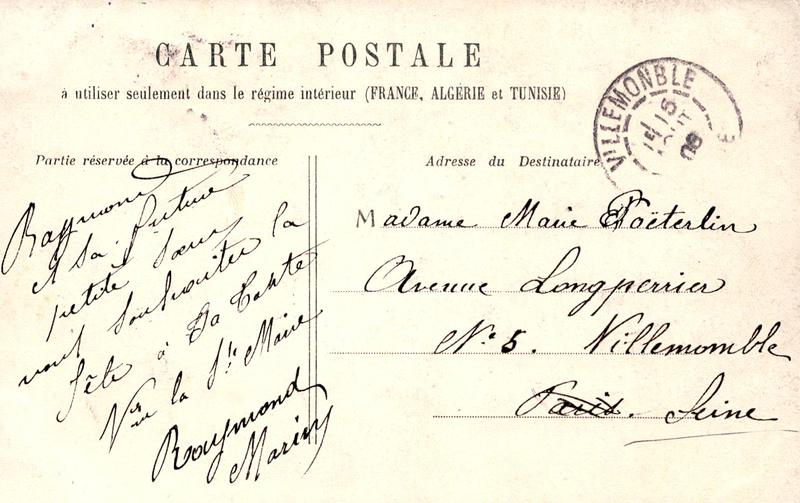 CARTE POSTALE
à utiliser seulement dans le régime intérieur (FRANCE, ALGÉRIE et TUNISIE)
Partie réservée à la correspondance
Adresse du Destinataire
VILLEMONBLE
15
08
Raymond
et sa future
petite sœur
vont souhaiter la
fête à Ta Tante
la Ste Marie
Raymond
Madame Marie
Avenue Longperrier
No 5. Villemomble
Paris. Seine